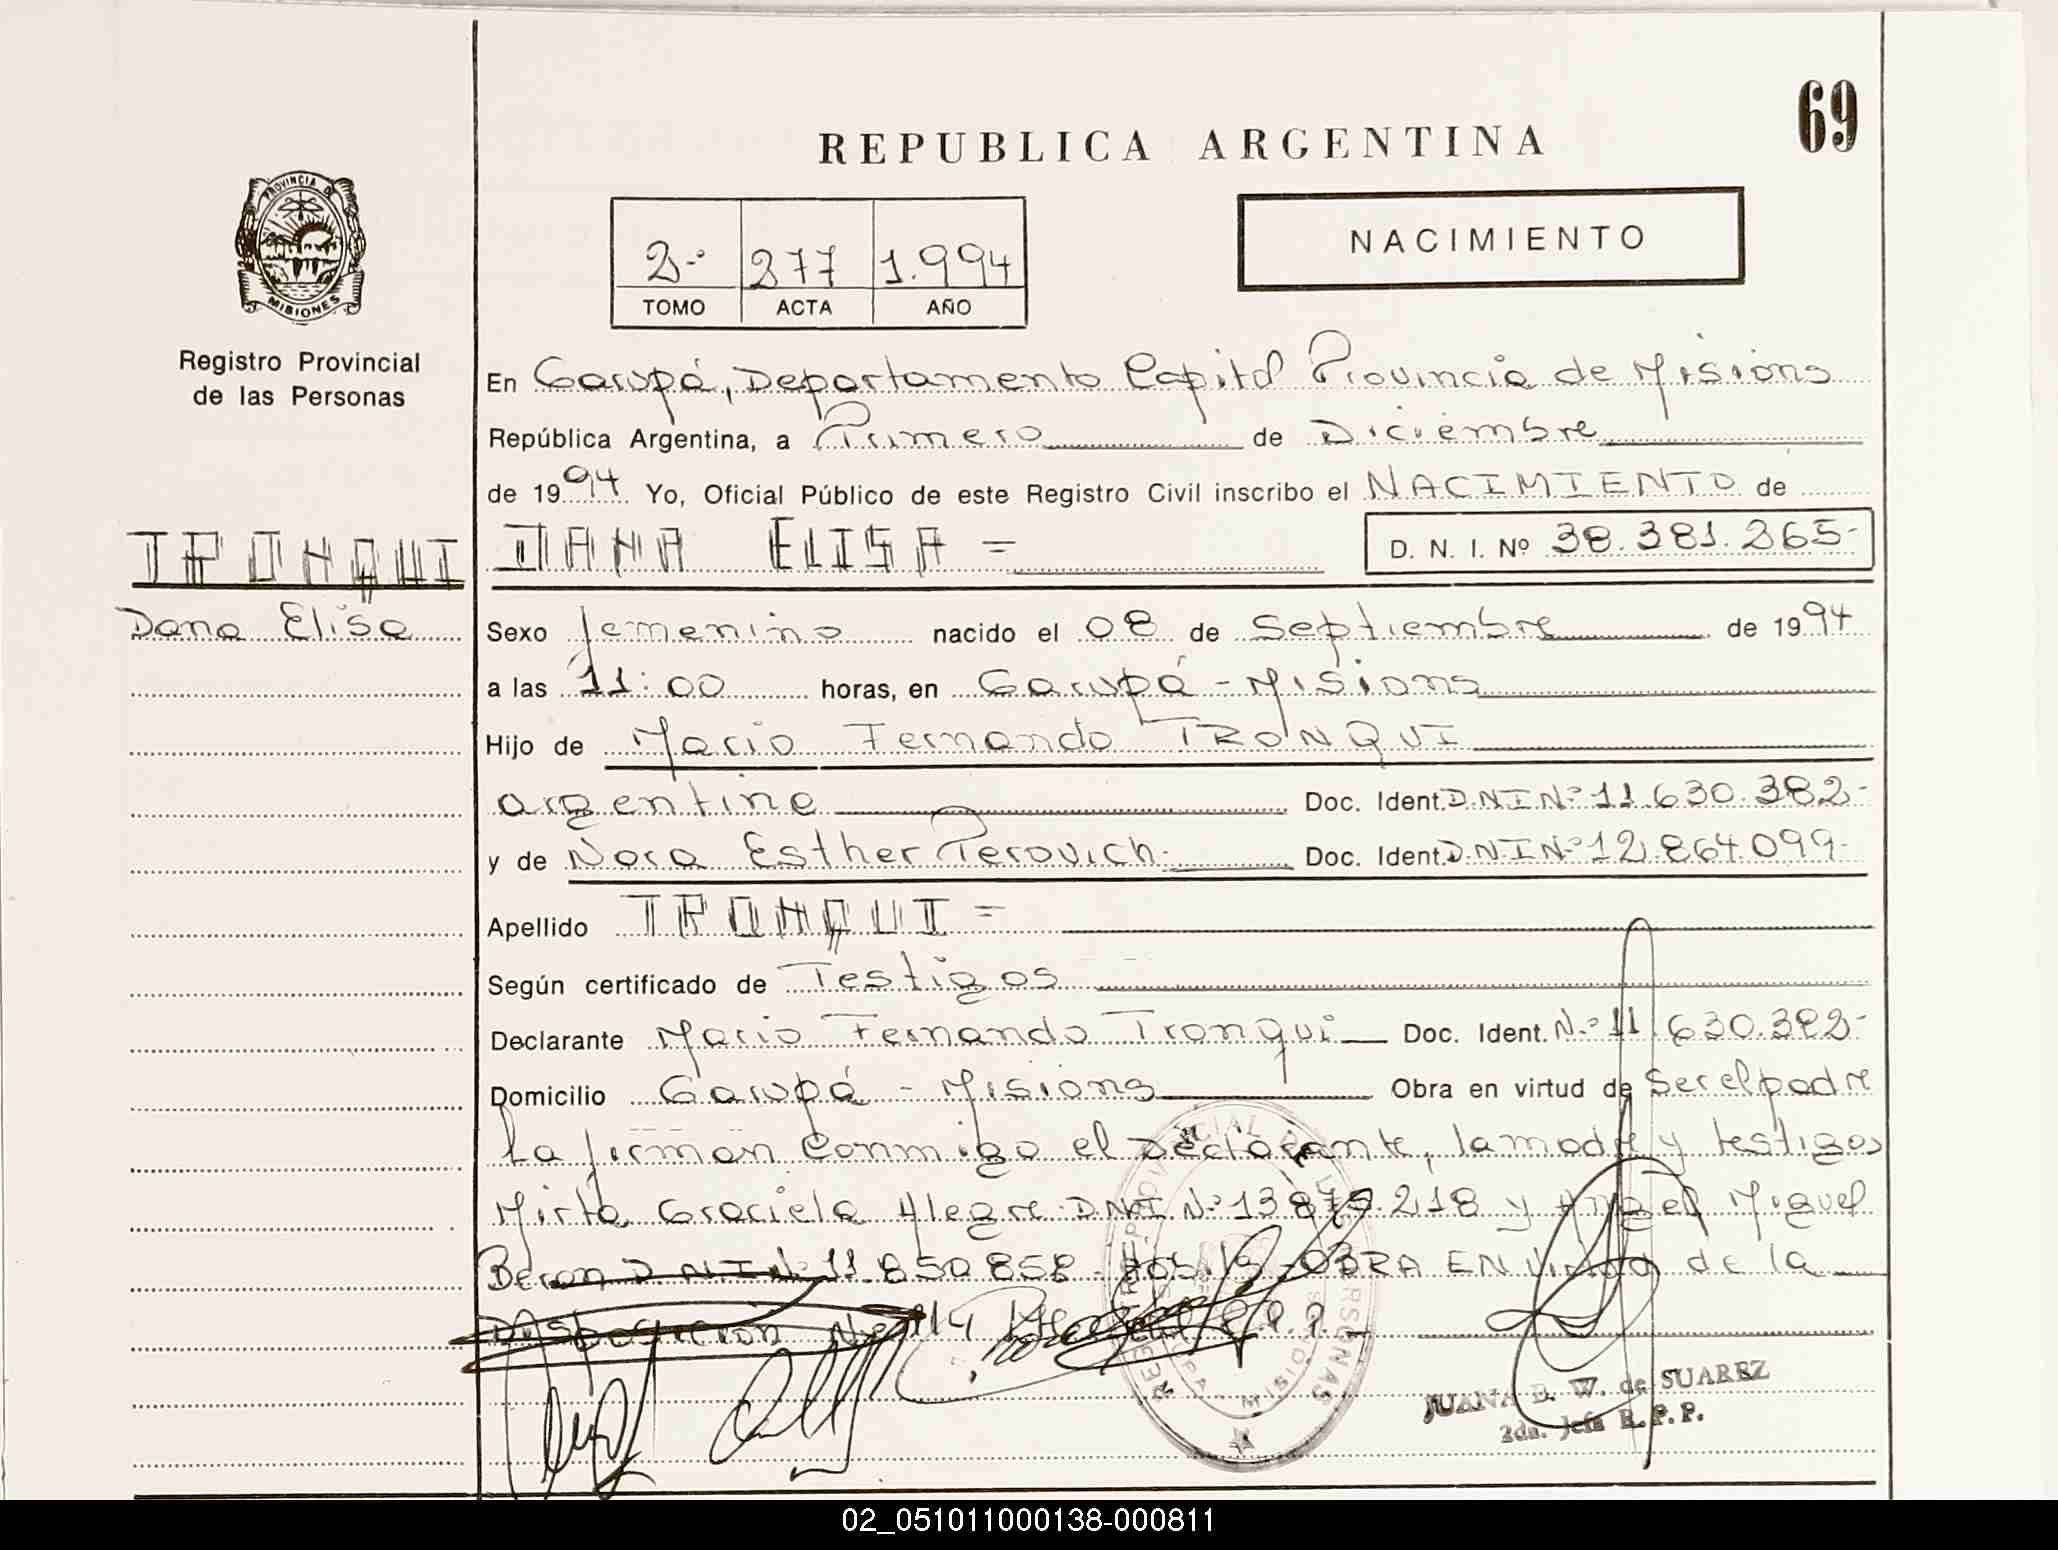 69
REPUBLICA ARGENTINA
PROVINCIA DE
MISIONES
2º 277 1.994
TOMO ACTA AÑO
NACIMIENTO
Registro Provincial
de las Personas
En Garupá, Departamento Capital Provincia de Misiones
República Argentina, a Primero de Diciembre
de 1994 Yo, Oficial Público de este Registro Civil inscribo el NACIMIENTO de
TRONQUI DANA ELISA = D. N. I. Nº 38.381.265-
Dana Elisa
Sexo femenino nacido el 08 de Septiembre de 1994
a las 11:00 horas, en Garupá - Misiones
Hijo de Mario Fernando TRONQUI
argentino Doc. Ident. D.N.I Nº 11.630.382-
y de Nora Esther Perovich- Doc. Ident. D.N.I Nº 12.864.099-
Apellido TRONQUI =
Según certificado de Testigos
Declarante Mario Fernando Tronqui Doc. Ident. Nº 11.630.382-
Domicilio Garupá - Misiones Obra en virtud de Ser el padre
La firman conmigo el Declarante, la madre y testigos
Mirta Graciela Alegre D.N.I. Nº 13.875.218 y Angel Miguel
Beron D.N.I Nº 11.850.858- OBRA EN Virtud de la
Disposicion
JUANA B. W. de SUAREZ
2da. Jefa R.P.P.
02_051011000138-000811